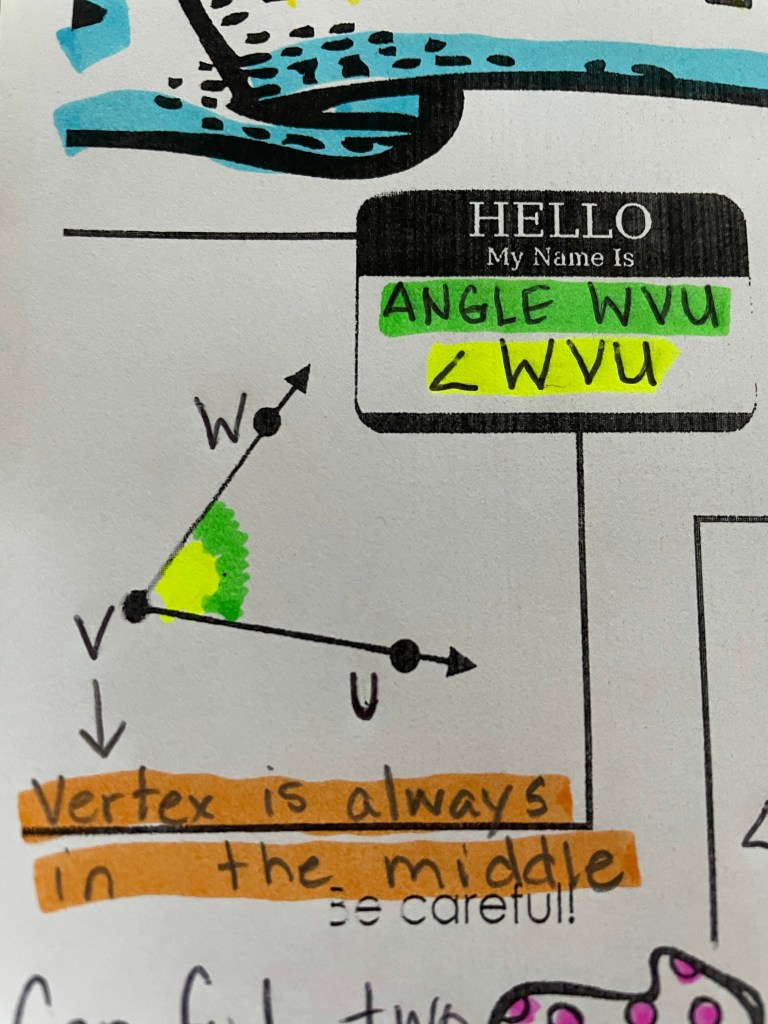 HELLO
My Name Is
ANGLE WVU
∠WVU
W
V
U
Vertex is always
in the middle
Be careful!
two